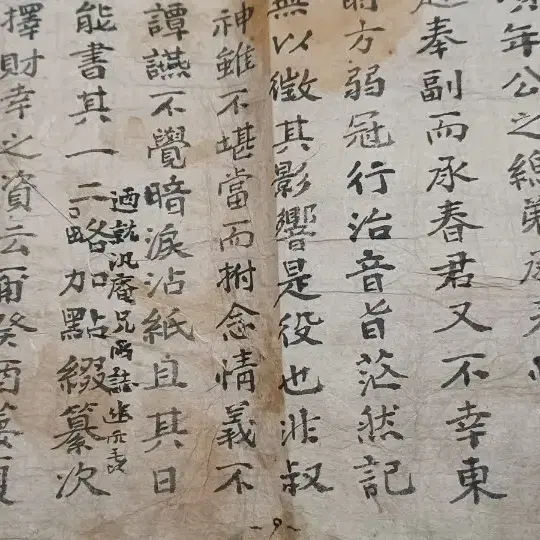 年公之
奉副而承春君又不幸東
時方弱冠行治音旨茫然記
無以徵其影響是役也非叔
神雖不堪當而拊念情義不
譚讌不覺暗淚沾紙且其日
迺就汎庵兄所誌
能書其一二略加點綴纂次
擇財幸之資云爾癸酉
9